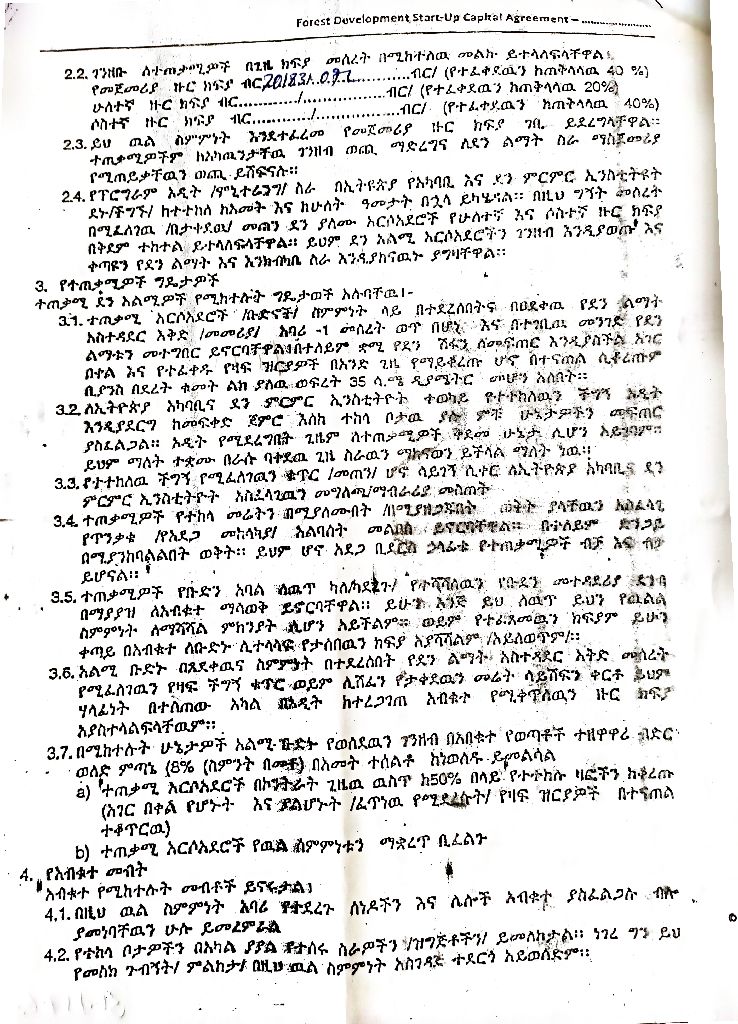 Forest Development Start-Up Capital Agreement – ........................
2.2. ገንዘቡ ለተጠቃሚዎች በጊዜ ክፍያ መሰረት በሚከተለዉ መልኩ ይተላለፍላቸዋል፤
የመጀመሪያ ዙር ክፍያ ብር ............ብር/ (የተፈቀደዉን ከጠቅላላዉ 40 %)
ሁለተኛ ዙር ክፍያ ብር............/................ብር/ (የተፈቀደዉን ከጠቅላላዉ 20%)
ሶስተኛ ዙር ክፍያ ብር............/................ብር/ (የተፈቀደዉን ከጠቅላላዉ 40%)
2.3. ይህ ዉል ስምምነት እንደተፈረመ የመጀመሪያ ዙር ክፍያ ገቢ ይደረግላቸዋል።
ተጠቃሚዎችም ከአካዉንታቸዉ ገንዘብ ወጪ ማድረግና ለደን ልማት ስራ ማስጀመሪያ
የሚጠይቃቸዉን ወጪ ይሸፍናሉ።
2.4. የፕሮግራም ኦዲት /ሞኒተሪንግ/ ስራ በኢትዮጵያ የአካባቢ እና ደን ምርምር ኢንስቲትዩት
ደኑ/ችግኙ/ ከተተከለ ከአመት እና ከሁለት ዓመታት በኋላ ይካሄዳል። በዚህ ግኝት መሰረት
በሚፈለገዉ /በታቀደዉ/ መጠን ደን ያለሙ አርሶአደሮች የሁለተኛ እና ሶስተኛ ዙር ክፍያ
በቅደም ተከተል ይተላለፍላቸዋል። ይህም ደን አልሚ አርሶአደሮችን ገንዘብ እንዲያወጡ እና
ቀጣዩን የደን ልማት እና እንክብካቤ ስራ እንዲያከናዉኑ ያግዛቸዋል።
3. የተጠቃሚዎች ግዴታዎች
ተጠቃሚ ደን አልሚዎች የሚከተሉት ግዴታወች አሉባቸዉ፤-
3.1. ተጠቃሚ አርሶአደሮች /ቡድኖች/ ስምምነት ላይ በተደረሰበትና በፀደቀዉ የደን ልማት
አስተዳደር እቅድ /መመሪያ/ አባሪ -1 መሰረት ወጥ በሆነ እና በተገቢዉ መንገድ የደን
ልማቱን መተግበር ይኖርባቸዋል፤በተለይም ቋሚ የደን ሽፋን ለመፍጠር እንዲያስችል አገር
በቀል እና የተፈቀዱ የዛፍ ዝርያዎች በአንድ ጊዜ የማይቆረጡ ሆኖ በተናጠል ሲቆረጡም
ቢያንስ በደረት ቁመት ልክ ያለዉ ወፍረት 35 ሳ.ሜ ዲያሜትር መሆን አለበት።
3.2. ለኢትዮጵያ አካባቢና ደን ምርምር ኢንስቲትዮት ተወካይ የተተከለዉን ችግኝ ኦዲት
እንዲያደርግ ከመፍቀድ ጀምሮ እስከ ተከላ ቦታዉ ያሉ ምቹ ሁኔታዎችን መፍጠር
ያስፈልጋል። ኦዲት የሚደረግበት ጊዜም ለተጠቃሚዎች ቅድመ ሁኔታ ሊሆን አይገባም።
ይህም ማለት ተቋሙ በራሱ ባቀደዉ ጊዜ ስራዉን ማከናወን ይችላል ማለት ነዉ።
3.3. የተተከለዉ ችግኝ የሚፈለገዉን ቁጥር /መጠን/ ሆኖ ሳይገኝ ሲቀር ለኢትዮጵያ አካባቢና ደን
ምርምር ኢንስቲትዮት አስፈላጊዉን መግለጫ/ማብራሪያ መስጠት
3.4. ተጠቃሚዎች የተከላ መሬትን በሚያለሙበት /በሚያዘጋጁበት ወቅት ያላቸዉን አስፈላጊ
የጥንቃቄ /የአደጋ መከላከያ/ አልባሳት መልበስ ይኖርባቸዋል። በተለይም ድንጋይ
በሚያንከባልልበት ወቅት። ይህም ሆኖ አደጋ ቢደርስ ኃላፊቱ የተጠቃሚዎች ብቻ እና ብቻ
ይሆናል።
3.5. ተጠቃሚዎች የቡድን አባል ለዉጥ ካለ/ካደረጉ/ የተሻሻለዉን የቡድን መተዳደሪያ ደንብ
በማያያዝ ለአብቁተ ማሳወቅ ይኖርባቸዋል። ይሁን እንጅ ይህ ለዉጥ ይህን የዉልል
ስምምነት ለማሻሻል ምክንያት ሊሆን አይችልም። ወይም የተፈጸመዉን ክፍያም ይሁን
ቀጣይ በአብቁተ ለቡድኑ ሊተላለፍ የታሰበዉን ክፍያ አያሻሽልም /አይለዉጥም/።
3.6. አልሚ ቡድኑ በጸደቀዉና ስምምነት በተደረሰበት የደን ልማት አስተዳደር እቅድ መሰረት
የሚፈለገዉን የዛፍ ችግኝ ቁጥር ወይም ሊሸፈን የታቀደዉን መሬት ሳይሸፍን ቀርቶ ይህም
ሃላፊነት በተሰጠው አካል በኦዲት ከተረጋገጠ አብቁተ የሚቀጥለዉን ዙር ክፍያ
አያስተላልፍላቸዉም።
3.7. በሚከተሉት ሁኔታዎች አልሚ ቡድኑ የወሰደዉን ገንዘብ በአበቁተ የወጣቶች ተዘዋዋሪ ብድር
ወለድ ምጣኔ (8% (ስምንት በመቶ) በአመት ተሰልቶ ከነወለዱ ይመልሳል
a) ተጠቃሚ አርሶአደሮች በኮንትራት ጊዜዉ ዉስጥ ከ50% በላይ የተተከሉ ዛፎችን ከቆረጡ
(አገር በቀል የሆኑት እና ያልሆኑት /ፈጥነዉ የሚደርሱት/ የዛፍ ዝርያዎች በተናጠል
ተቆጥርዉ)
b) ተጠቃሚ አርሶአደሮች የዉል ስምምነቱን ማቋረጥ ቢፈልጉ
4. የአብቁተ መብት
አብቁተ የሚከተሉት መብቶች ይኖሩታል፤
4.1. በዚህ ዉል ስምምነት አባሪ የተደረጉ ሰነዶችን እና ሌሎች አብቁተ ያስፈልጋሉ ብሎ
ያመነባቸዉን ሁሉ ይመረምራል
4.2. የተከላ ቦታዎችን በአካል ያያል የተሰሩ ስራዎችን /ዝግጅቶችን/ ይመለከታል። ነገረ ግን ይህ
የመስክ ጉብኝት/ ምልከታ/ በዚህ ዉል ስምምነት አስገዳጅ ተደርጎ አይወሰድም።